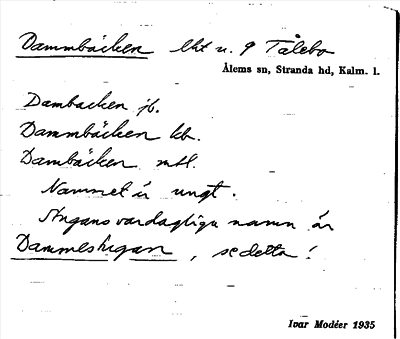 Dammbäcken lht u. 9 Tålebo
Ålems sn, Stranda hd, Kalm. l.
Dambacken jb.
Dammbäcken kb.
Dambäcken mtl.
Namnet är ungt.
Stugans vardagliga namn är
Dammestugan, se detta!
Ivar Modéer 1935